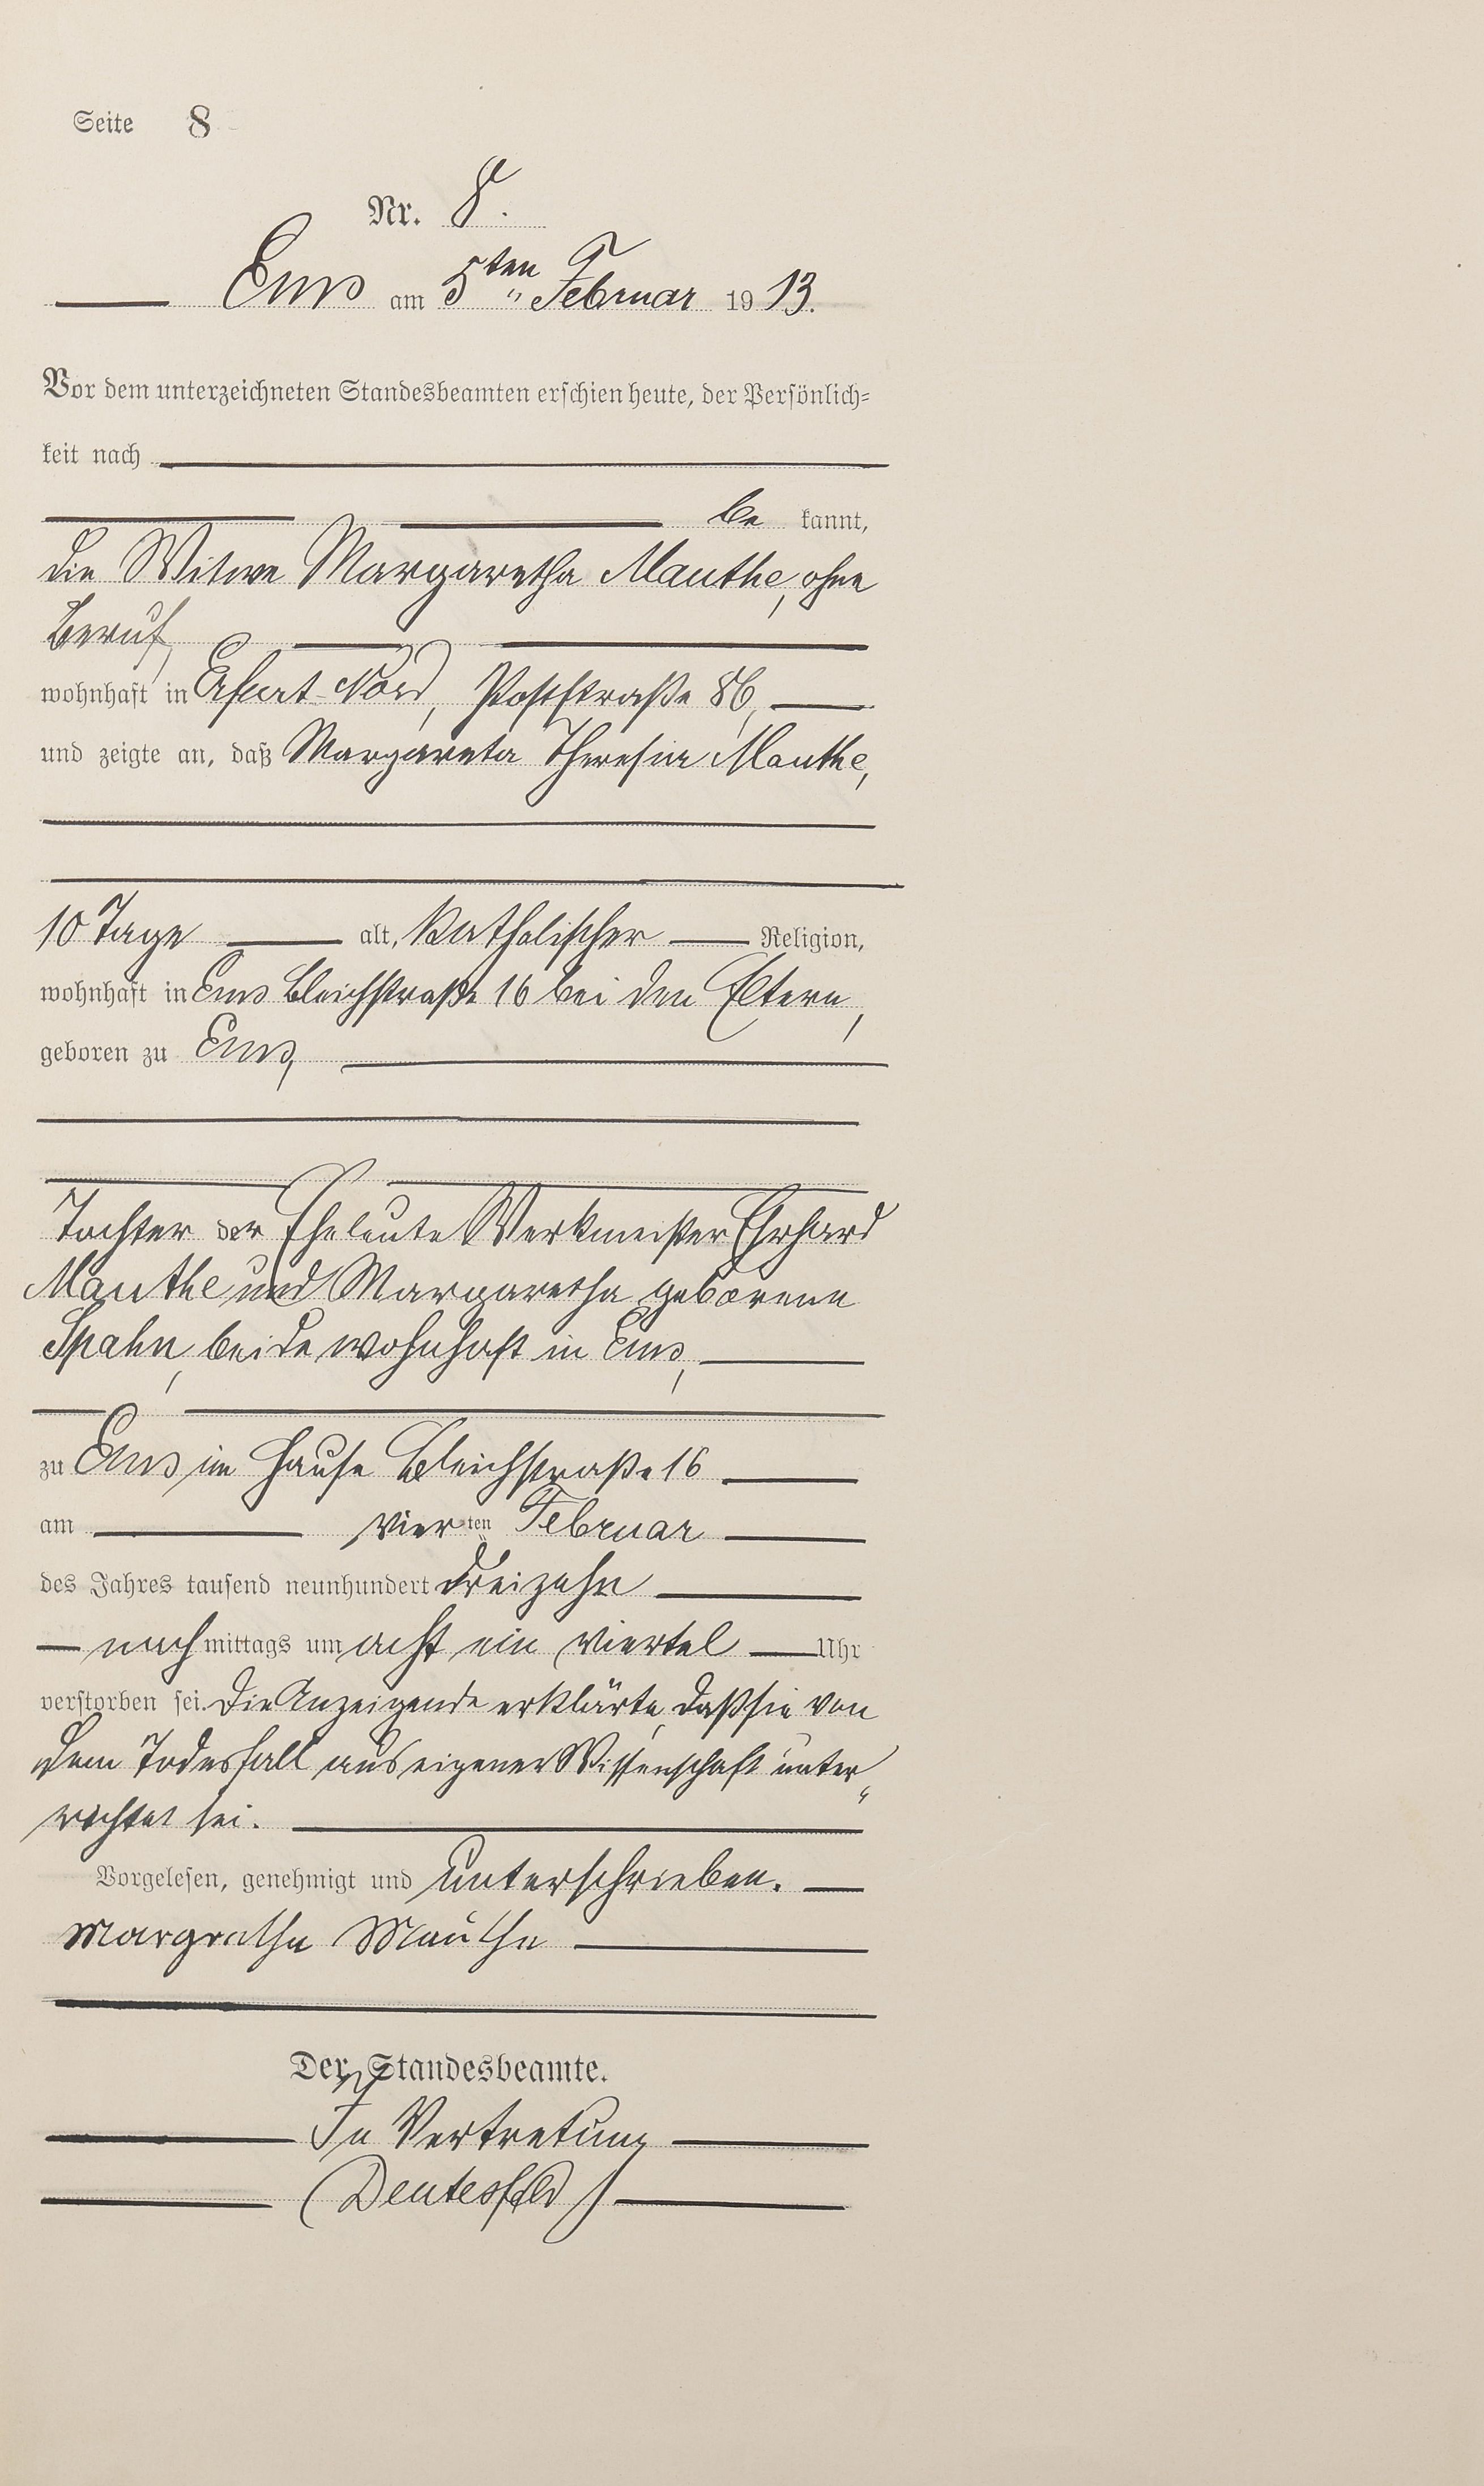 Seite 8
Nr. 8.
Ems am 5ten Februar 1913.
Vor dem unterzeichneten Standesbeamten erschien heute, der Persönlich-
keit nach
be kannt,
die Witwe Margaretha Manthe, ohne
Beruf,
wohnhaft in Erfurt-Nord, Poststraße 86,
und zeigte an, daß Margareta Theresia Manthe,
10 Tage alt, katholischer Religion,
wohnhaft in Ems Bleichstraße 16 bei den Eltern,
geboren zu Ems,
Tochter der Eheleute Werkmeister Ehrhard
Manthe und Margaretha geborene
Spahn, beide wohnhaft in Ems,
zu Ems im Hause Bleichstraße 16
am vierten Februar
des Jahres tausend neunhundert dreizehn
nachmittags um acht ein viertel Uhr
verstorben sei. Die Anzeigende erklärte, daß sie von
dem Todesfall aus eigener Wissenschaft unter"
richtet sei.
Vorgelesen, genehmigt und unterschrieben.
Margretha Manthe
Der Standesbeamte.
In Vertretung